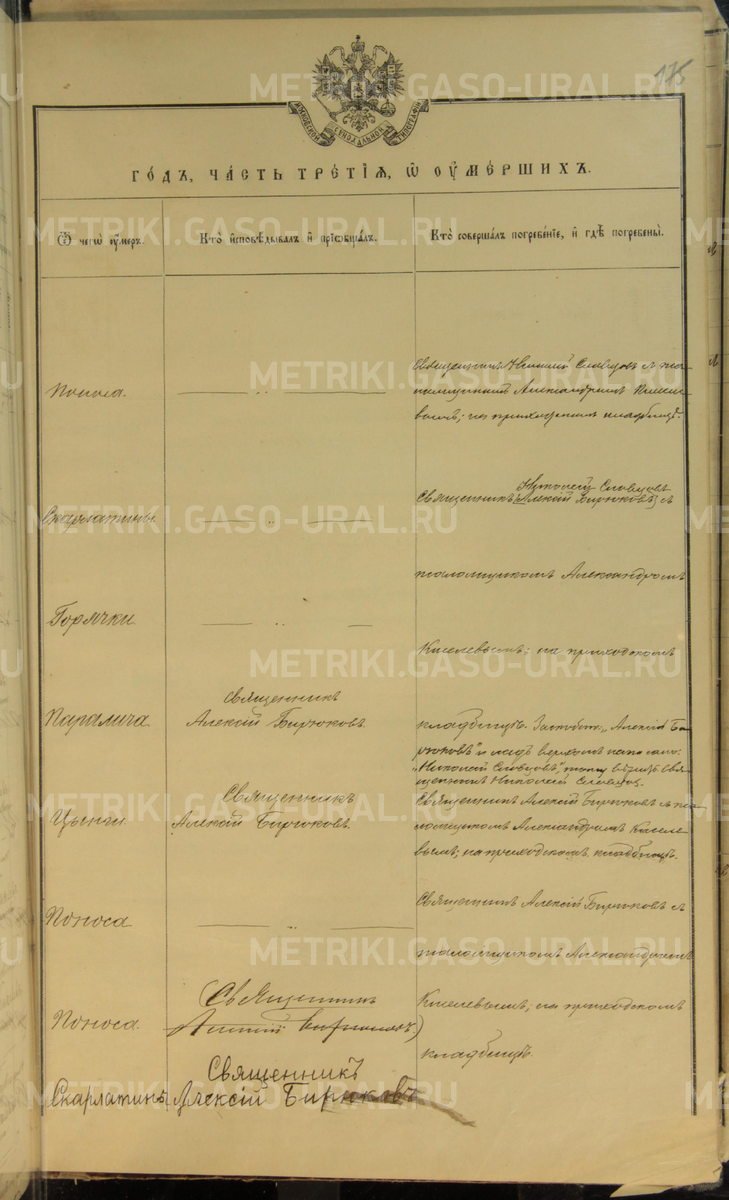 175
МОСКОВСКОЙ СѴНОДАЛЬНОЙ ТИПОГРАФІИ
ГО́ДЪ, ЧА́СТЬ ТРЕ́ТІѦ, Ѡ҆ ОУ҆МЕ́РШИХЪ.
Ѿ чегѡ̀ оу҆́меръ.
Кто̀ и҆сповѣ́дывалъ и҆ прїѡбща́лъ.
Кто̀ соверша́лъ погребе́нїе, и҆ гдѣ̀ погребены̀.
Поноса.
Священникъ Николай Словцовъ съ пса-
ломщикомъ Александромъ Киселе-
вымъ; на приходскомъ кладбищѣ.
Скарлатины
Николай Словцовъ
Священникъ [Алексій Бирюковъ] съ
псаломщикомъ Александромъ
Горячки
Киселевымъ; на приходскомъ
Паралича
Священникъ
Алексій Бирюковъ
кладбищѣ. "Алексій Би-
рюковъ" и надъ верхомъ написано:
"Николай Словцовъ", вѣрить свя-
щенникъ Николай Словцовъ.
Цынги
Священникъ
Алексій Бирюковъ.
Священникъ Алексій Бирюковъ съ пса-
ломщикомъ Александромъ Киселе-
вымъ; на приходскомъ кладбищѣ.
Поноса
Священникъ Алексій Бирюковъ съ
псаломщикомъ Александромъ
Поноса
(Священникъ
Алексій Бирюковъ)
Киселевымъ, на приходскомъ
кладбищѣ.
Скарлатины
Священникъ
Алексій Бирюковъ
METRIKI.GASO-URAL.RU